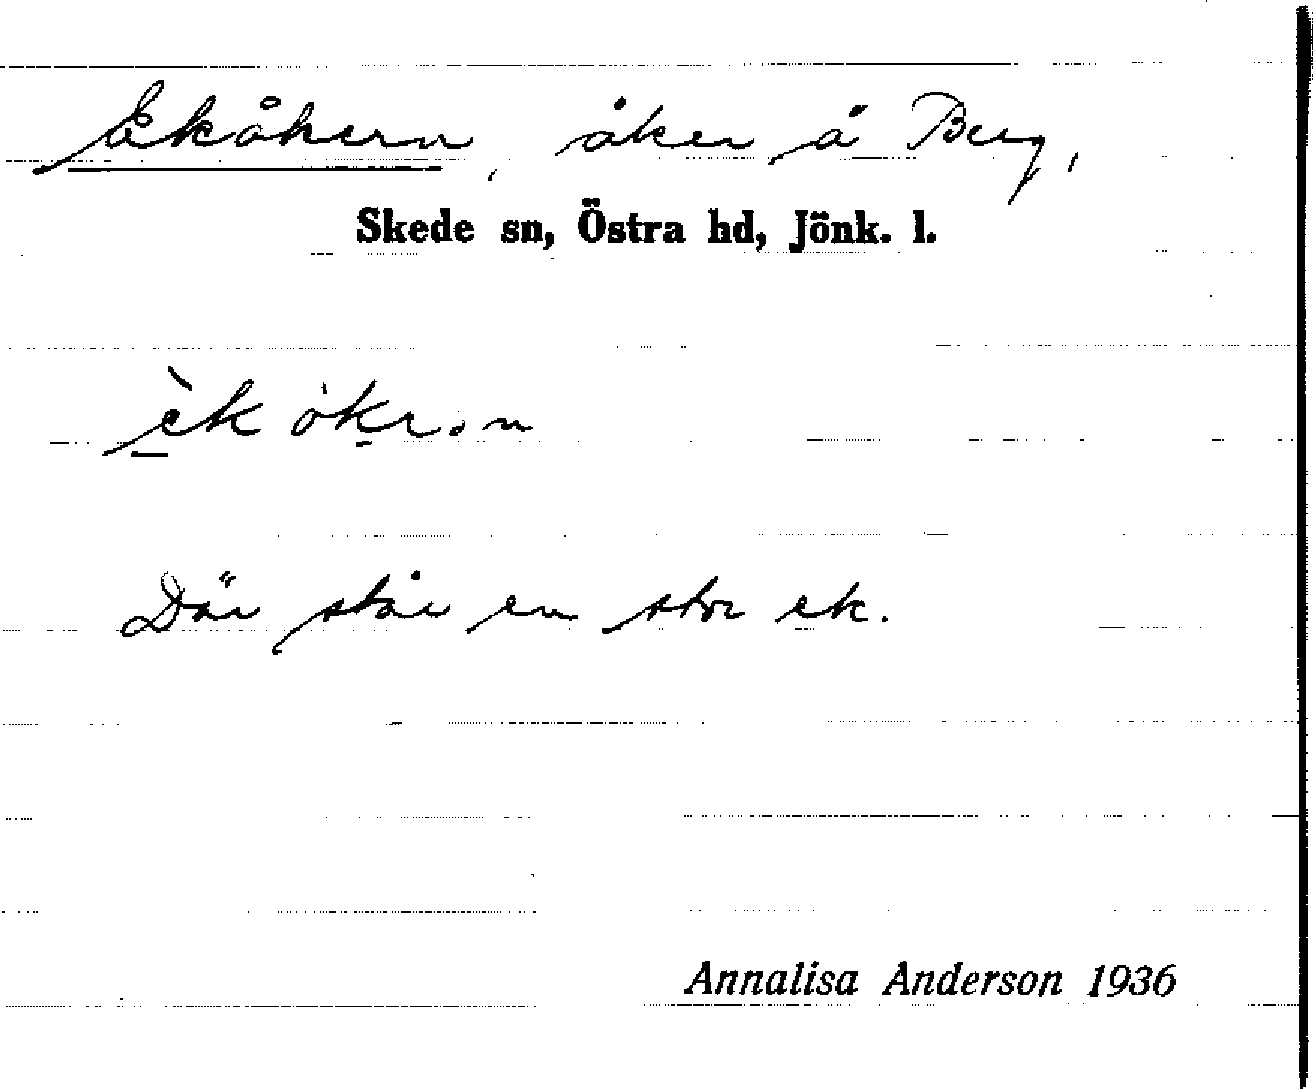 Ekåkern, åker å Berg,
Skede sn, Östra hd, Jönk. l.
Där står en stor ek.
Annalisa Anderson 1936